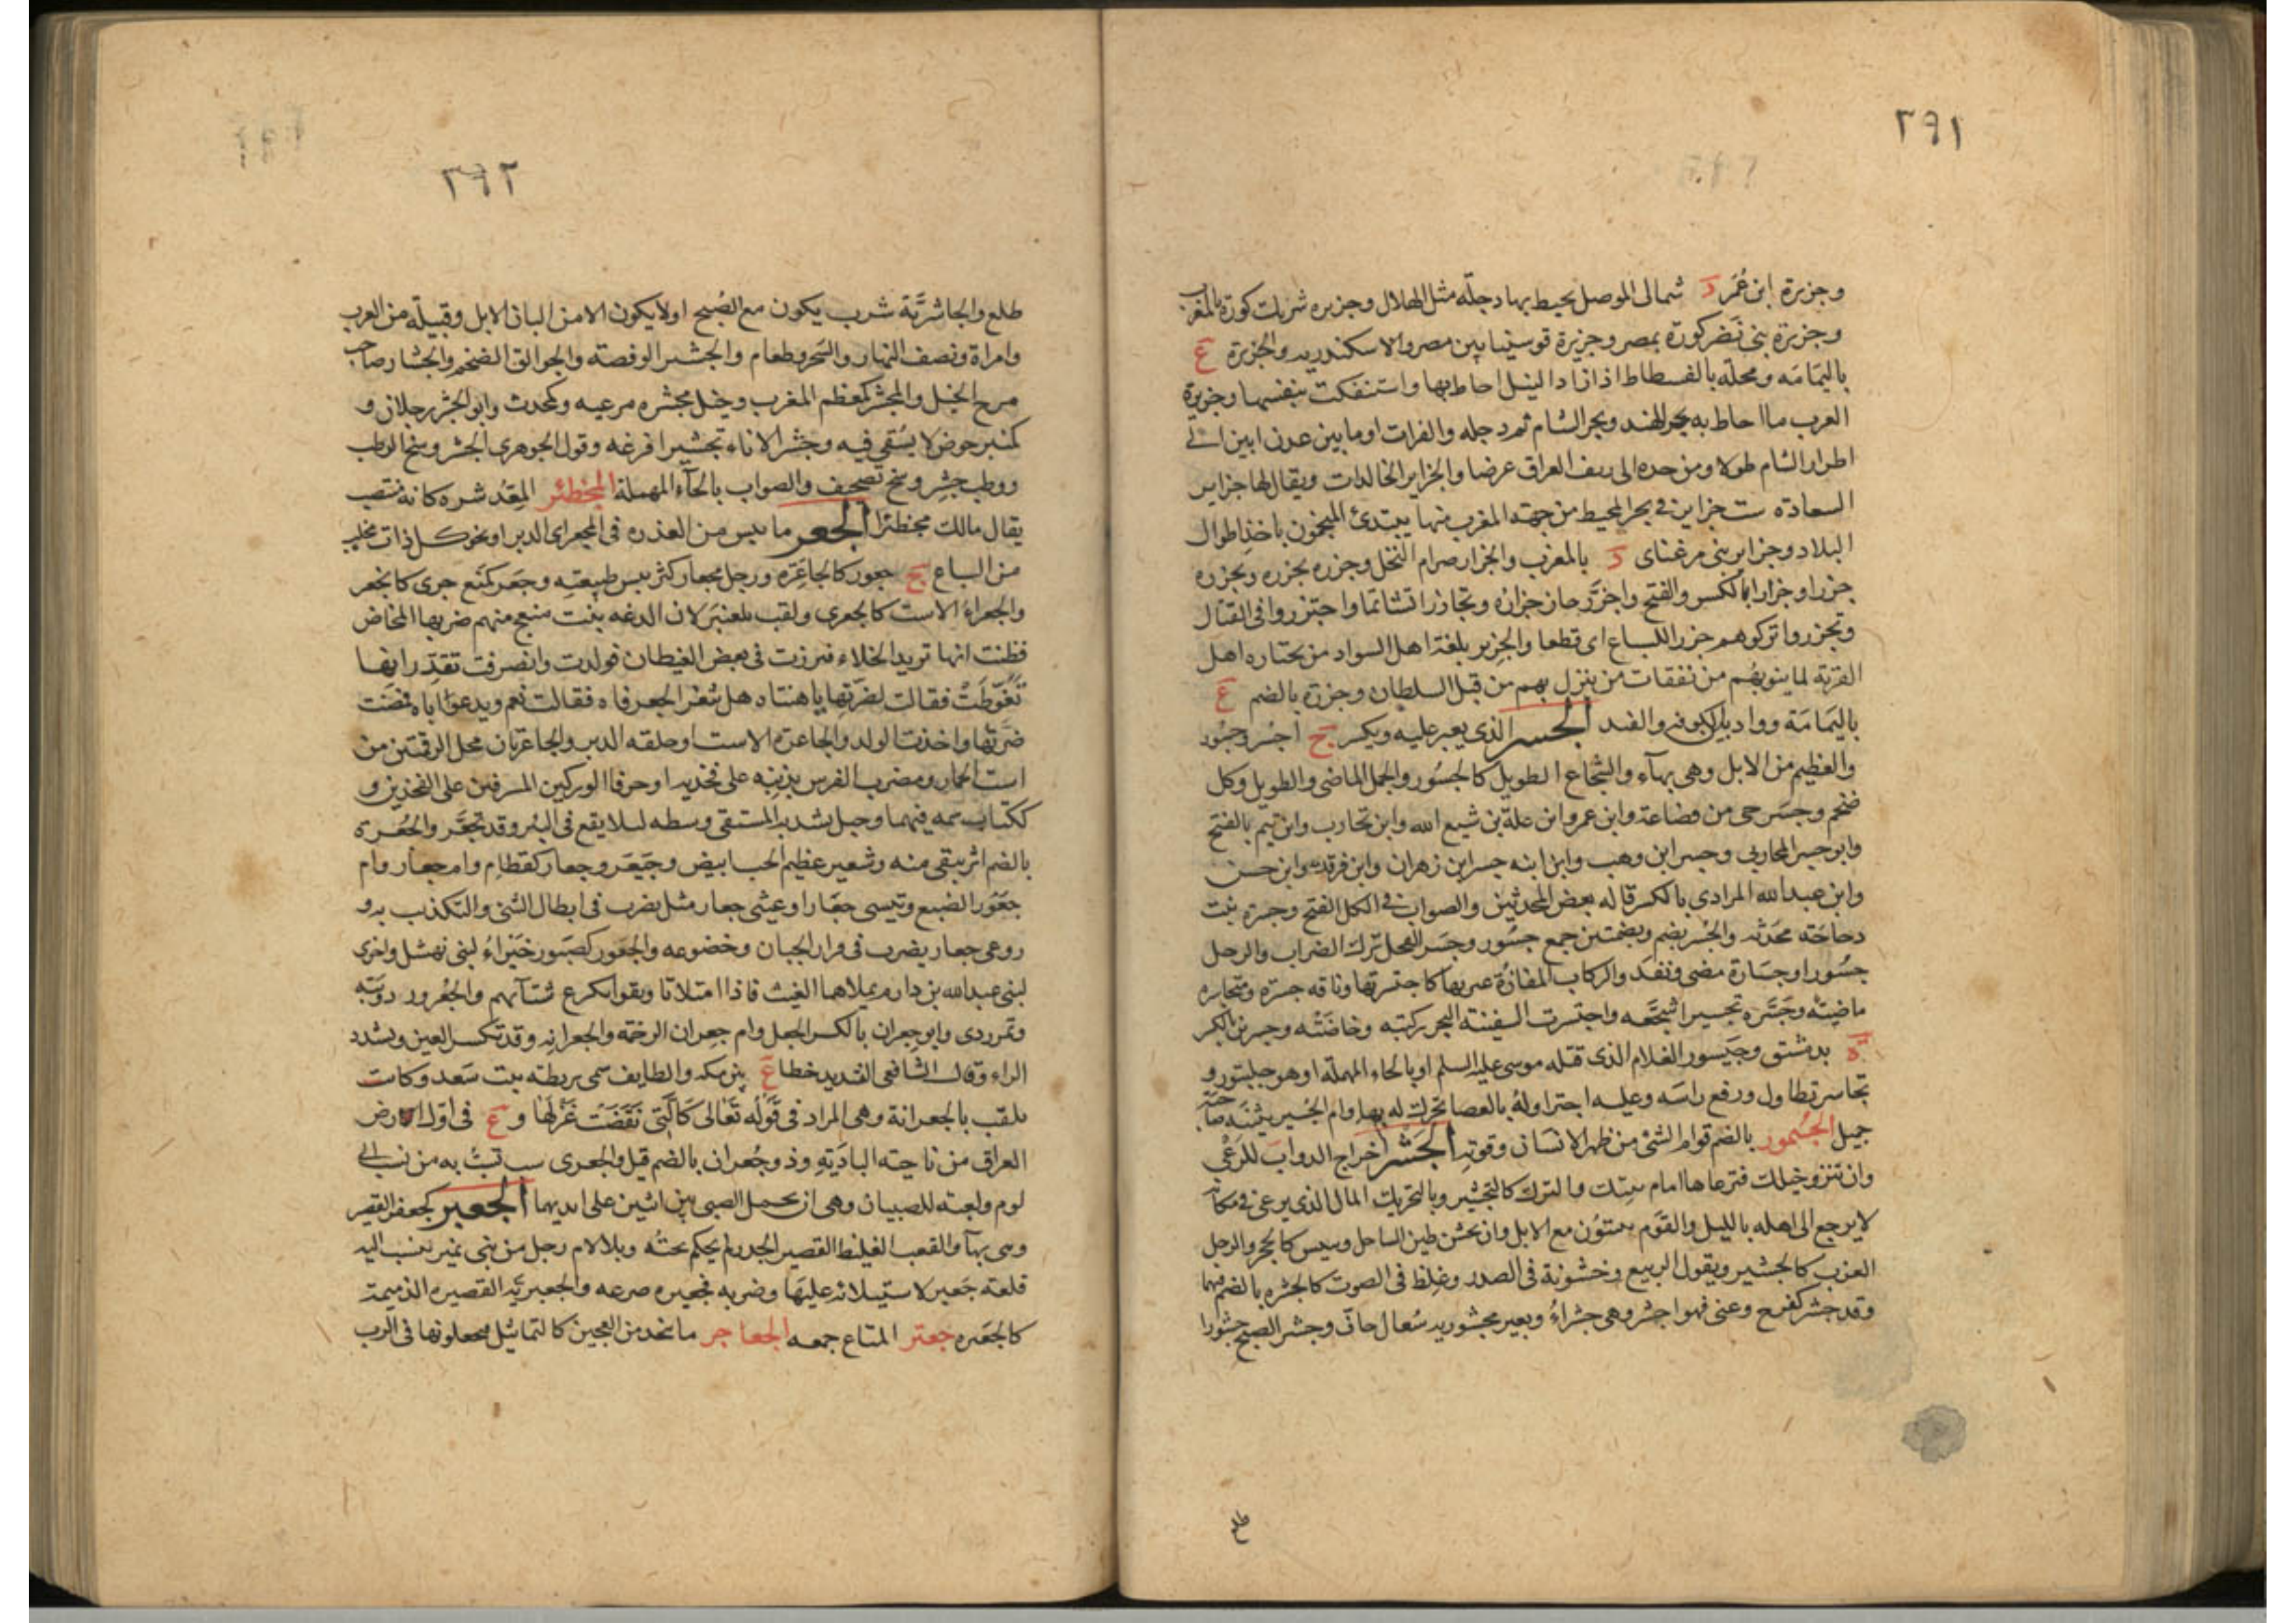 ٢٩١
وجزيرة ابن عُمَر د شمالى الموصل يحيط بها دجلة مثل الهلال وجزيره شريك كورة بالمغرب
وجزيرة بنى نَضر كورة بمصر وجزيرة قوسنيا بين مصر والاسكندريه والجزيرة ع
باليمَامَه ومحلة بالفسطاط اذا زاد النيل احاط بها واستنفكت بنفسها وجزيرة
العرب ما احاط به بحر الهند وبحر الشام ثم دجله والفرات او ما بين عدن ابين الى
اطرار الشام طولا ومن جده الى ريف العراق عرضا والجزاير الخالدات ويقال لها جزاير
السعاده ست جزاير فى بحر المحيط من جهة المغرب منها يبتدئ المنجمون باخذ اطوال
البلاد وجزاير بنى مرغناى د بالمغرب والجزار صرام النخل وجزره يجزره ويجزره
جزرا وجزارا بالكسر والفتح واجزَر حان جزاره وتجازرا تشاتما واجتزروا فى القتال
وتجزروا تركوهم جزر اللسباع اى قطعا والجزير بلغة اهل السواد من يختاره اهل
القرية لما ينوبهُم من نفقات من ينزل بهم من قبل السلطان وجزرة بالضم ع
باليَمامَة وواد بين الكوفه والفيد الجسر الذى يعبر عليه ويكسر ج اجسُر وجسُور
والعظيم من الابل وهى بهآء والشجاع الطويل كالجسُور والجمل الماضى والطويل وكل
ضخم وجسَر حى من قضاعة وابن عمرو ابن علة بن شيع الله وابن محارب وابن تيم بالفتح
وابو جسر المحاربى وجسر ابن وهب وابن ابنه جسر ابن زهران وابن فرقد وابن حسن
وابن عبد الله المرادى بالكسر قاله بعض المحدثين والصواب فى الكل الفتح وجسرة بنت
دجاجَة محَدّثة والجُسُر بضم وبضمتين جمع جسُور وجسَر الفحل ترك الضراب والرجل
جسُورا وجسَارة مضى ونفد والركاب المفازَة عبرتها كاجتسرتها وناقه جسرة ومتجاسره
ماضيَة وجَسَّره تجسيرا شجّعه واجتسرت السفينة البحر ركبته وخاضَتْه وجسرين بالكسر
ة بدمشق وجَيسور الغلام الذى قتله موسى عليه السلم او بالحاء المهملة او هو جلبتور و
تجاسر تطاول ورفع راسَه وعليه اجترا ولهُ بالعصا تحرك له بها وام الجُسير بثنَة صاحبة
جميل الجُسمُور بالضم قوام الشئ من ظهر الانسَان وقوته الجَشر اخراج الدوابّ للرعى
وان تنزو خيلك فترعاها امام بيتك والترك كالتجشير وبالتحريك المال الذى يرعى فى مكانه
لا يرجع الى اهله بالليل والقَوم يبيتُون مع الابل وان يخشن طين الساحل وييبس كالحجر والرجل
العزب كالجشير وبقول الربيع وخشونة فى الصدر وغِلظ فى الصوت كالجشره بالضم فيهما
وقد جشر كفرح وعنى فهوا جشر وهى جشراءُ وبعير مجشور به سُعال جافّ وجشر الصبح جشُورا
طلع
٢٩٢
طلع والجاشرَّية شرب يكون مع الصُبح اولا يكون الا من البان الابل وقبيلة من العرب
وامراة ونصف النهار والسَحر وطعام والجشير الوفضة والجوالق الضخم والجشار صاحب
مرج الخيل والمجشر كمعظم المغرب وخيل مجشره مرعيه وكمحدث وابو الجشر رجلان و
كمنبر حوض لا يُسقى فيه وجشر الاناء تجشيرا فرغه وقول الجوهرى الجشر وسخ الوطب
ووطب جشر وسخ تصحيف والصواب بالحَاء المهملة المجظئر المِعُد شره كانه منتصب
يقال مالك مجظئرا الجعر ما يبس من العذره فى المجعر اى الدبر او نجو كل ذات مخلب
من السباع ج جعور كالجاعَره ورجل مجعار كثر يبس طبيعته وجعَر كمنَع جرى كانجعر
والجعراءُ الاست كالجعرى ولقب بلعنبر لان الدغه بنت منبج منهم ضربها المخاض
فظنت انها تريد الخلاء فبرزت فى بعض الغيطان فولدت وانصرفت تقدّر انها
تَغَوَّطَتْ فقالت لضرّتها يا هنتاه هل يَفغر الجعر فاه فقالت نعم ويدعو اباه فمضت
ضرّتها واخذت الولد والجاعرة الاست او حلقة الدبر والجاعرتان محل الرقمتين من
است الحمار ومضرب الفرس بذنبه على فخذيه او حرفا الوركين المسرفين على الفخذين و
ككتاب سمه فيهما وحبل يشد به المستقى وسطه لئلا يقع فى البئر وقد تجعَّر والجُعُرة
بالضم اثر يبقى منه وشعير عظيم الحب ابيض وجَيعَر وجعار كقطام وام جعار وام
جعَوُر الضبع وتيسى جعَار او عيثى جعار مثل يضرب فى ابطال الشئ والتكذب به و
روعى جعار يضرب فى فرار الجبان وخضوعه والجعَور كصَبور خَبراءُ لبنى نهشل واخرى
لبنى عبد الله بن دارم يملاهما الغيث فاذا امتلاتا وثقوا بكرع شتآئهم والجُعرور دويبّة
وتمر ردى وابو جِعران بالكسر الجعل وام جعِران الرخمة والجعرانه وقد تكسر العين وتشدد
الراء وقال الشافعى التشديد خطا ع بين مكه والطايف سمى بريطة بنت سَعد وكانت
تلقب بالجعرانة وهى المراد فى قَوْله تعَالى كَالَّتى نَقَضَتْ غَزْلَهَا و ع فى اول ارض
العراق من ناحية البادَيَةِ وذو جُعران بالضم قيل والجعرى سب تبٌ به من نسب الى
لوم ولعبة للصبيان وهى ان يحمل الصبى بين اثنين على ايديهما الجعبر كجعفر القصير
وهى بهآ والقعب الغليظ القصير الجدر لم يحكم نحتُه وبلا لام رجل من بنى نمير ينسب اليه
قلعة جَعبر لاستيلائه عليهَا وضربه فجعبره صرعه والجعبريّه القصيره الذميمة
كالجعبره جعتر المتاع جمعه الجعاجر ما يتخذ من العجين كالتماثيل فيجعلونها فى الرب